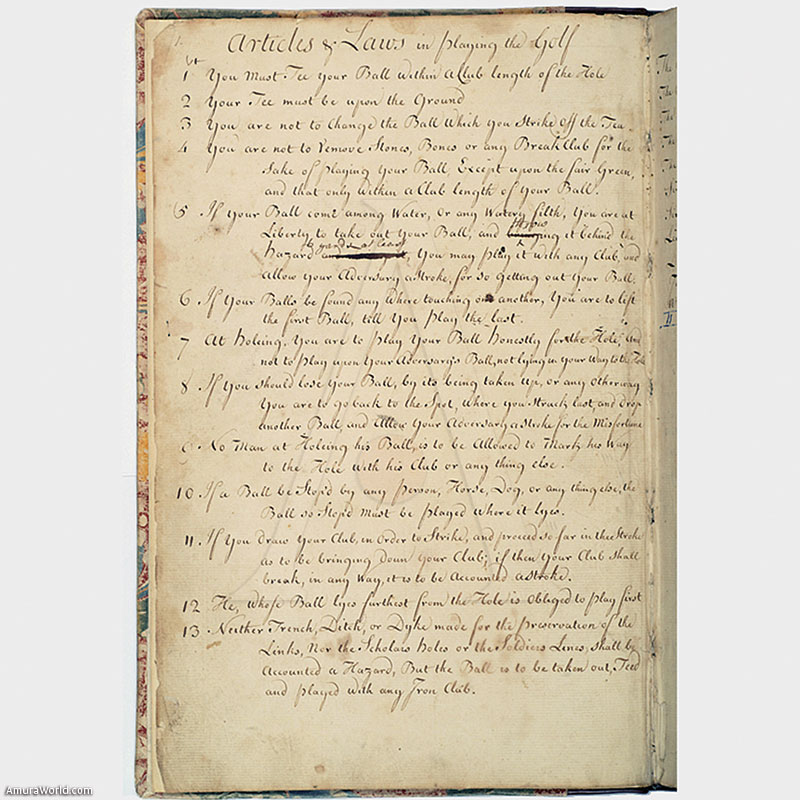 Articles & Laws in playing the Golf
1 You Must Tee your Ball within a Club length of the Hole
2 Your Tee must be upon the Ground
3 You are not to Change the Ball which you Strike off the Tee
4 You are not to remove Stones, Bones or any Break Club for the
Sake of playing your Ball, Except upon the fair Green,
and that only within a Club length of your Ball.
5 If your Ball come among Water, or any Watery filth, You are at
Liberty to take out your Ball, and throwing it behind the
hazard 6 yards at least, You may play it with any Club, and
allow your Adversary a Stroke, for so getting out your Ball.
6 If your Balls be found any where touching one another, You are to lift
the first Ball, till You play the last.
7 At holeing, You are to play Your Ball honestly for the Hole, and
not to play upon your Adversary's Ball, not lying in your Way to the Hole
8 If you should lose Your Ball, by its being taken up, or any other way
You are to go back to the Spot, where you Struck last, and drop
another Ball, and allow your Adversary a Stroke for the Misfortune
9 No Man at Holeing his Ball, is to be Allowed to Mark his Way
to the Hole with his Club or any thing else.
10 If a Ball be Stop'd by any person, Horse, Dog, or any thing else, the
Ball so Stop'd Must be played where it lyes.
11 If You draw your Club, in Order to Strike, and proceed so far in the Stroke
as to be bringing down Your Club; if then your Club shall
break, in any Way, it is to be Accounted a Stroke.
12 He, whose Ball lyes furthest from the Hole is Obliged to play first
13 Neither Trench, Ditch, or Dyke made for the preservation of the
Links, Nor the Scholars holes or the Soldiers Lines, shall be
Accounted a Hazard, But the Ball is to be taken out, Teed
and played with any Iron Club.
AmuraWorld.com